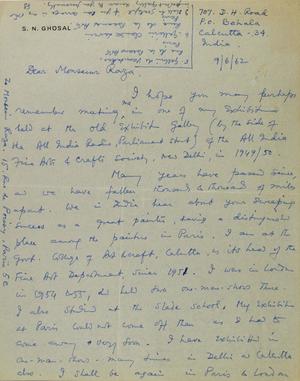 S. N. GHOSAL
707, D. H. Road
P.O. Behala
Calcutta - 34.
India.
9/6/62
Dear Monsieur Raza,
I hope you may perhaps
remember meeting me, in one of my Exhibitions
held at the old Exhibition Gallery (by the side of
the All India Radio, Parliament Street) of the All India
Fine Arts & Crafts Society, New Delhi, in 1949/50.
Many years have passed since,
as we have fallen thousands & thousands of miles
apart. We in India hear about your sweeping
success as a great painter, having a distinguished
place among the painters in Paris. I am at the
Govt. College of Art & Craft, Calcutta, as its head of the
Fine Art Department, since 1951. I was in London
in 1954 to 55, and held two one-man-show there.
I also studied at the Slade School. My Exhibition
at Paris could not come off then as I had to
come away very soon. I have exhibited in
one-man-show many times in Delhi & Calcutta
also. I shall be again in Paris & London